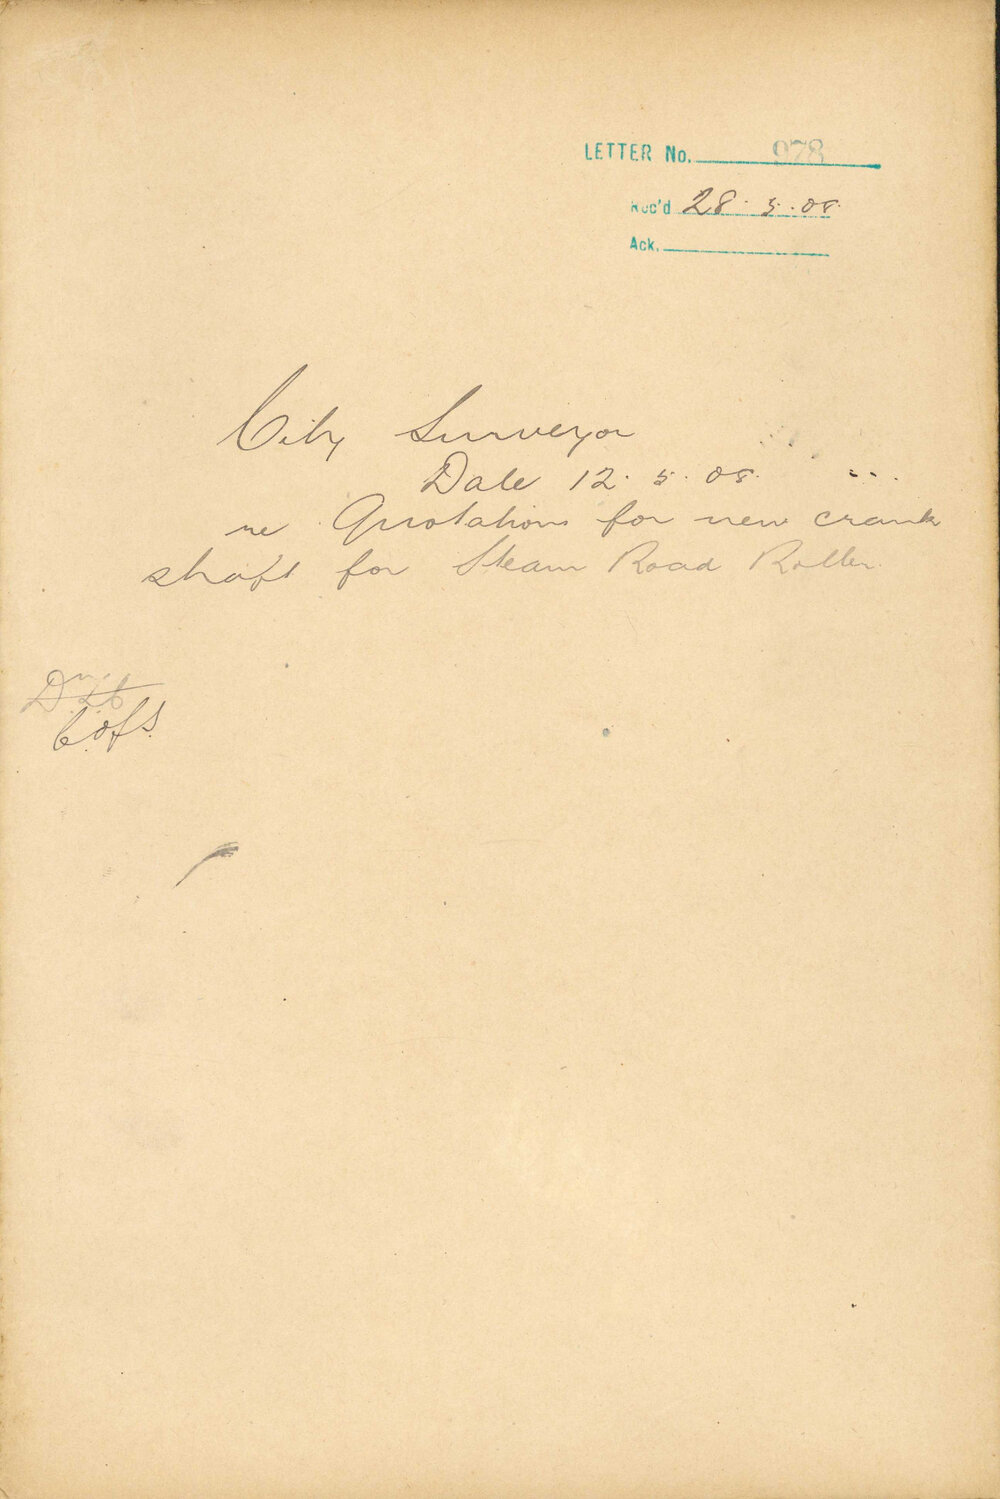 LETTER No. 978
Rec'd 28.5.08.
Ack.
City Surveyor
Date 12.5.08.
re Quotations for new crank
shaft for Steam Road Roller.
C of S.